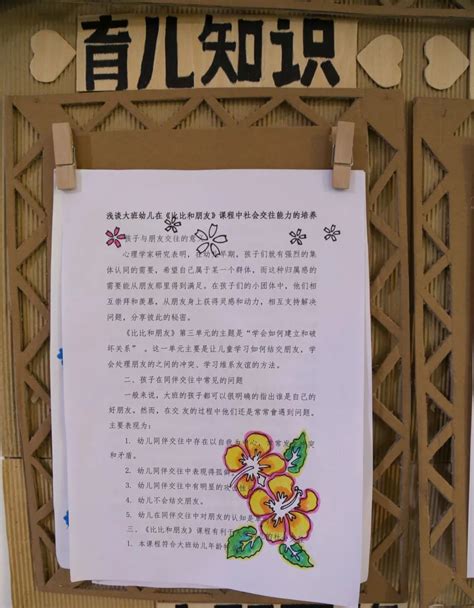 育儿知识
浅谈大班幼儿在《比比和朋友》课程中社会交往能力的培养
孩子与朋友交往的意
心理学家研究表明，在幼儿早期，孩子们就有强烈的集
体认同的需要，希望自己属于某一个群体，而这种归属感的
需要能从朋友那里得到满足。在孩子们的小团体中，他们相
互崇拜和羡慕，从朋友身上获得灵感和动力，相互支持解决
问题，分享彼此的秘密。
《比比和朋友》第三单元的主题是“学会如何建立和破
坏关系”。这一单元主要是让儿童学习如何结交朋友，学
会处理朋友之间的冲突，学习维系友谊的方法。
二、孩子在同伴交往中常见的问题
一般来说，大班的孩子都可以很明确的指出谁是自己的
好朋友。然而，在交 友的过程中他们还是常常會遇到问题。
主要表现为：
1. 幼儿同伴交往中存在以自我为中心，常常发 突
和矛盾。
2. 幼儿同伴交往中表现得孤
3. 幼儿同伴交往中有明显的攻
4. 幼儿不会结交朋友。
5. 幼儿在同伴交往中对朋友的认知是
三、《比比和朋友》课程有利于 的社
1. 本课程符合大班幼儿年龄